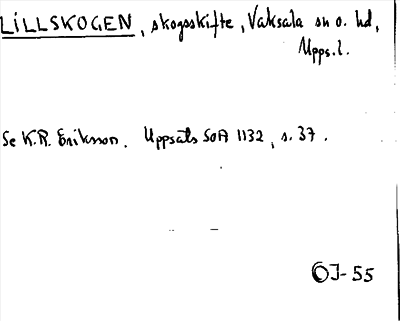 LILLSKOGEN, skogsskifte, Vaksala sn o. hd,
Upps. l.
Se K.R. Eriksson. Uppsats SOA 1132, s. 37.
OJ-55